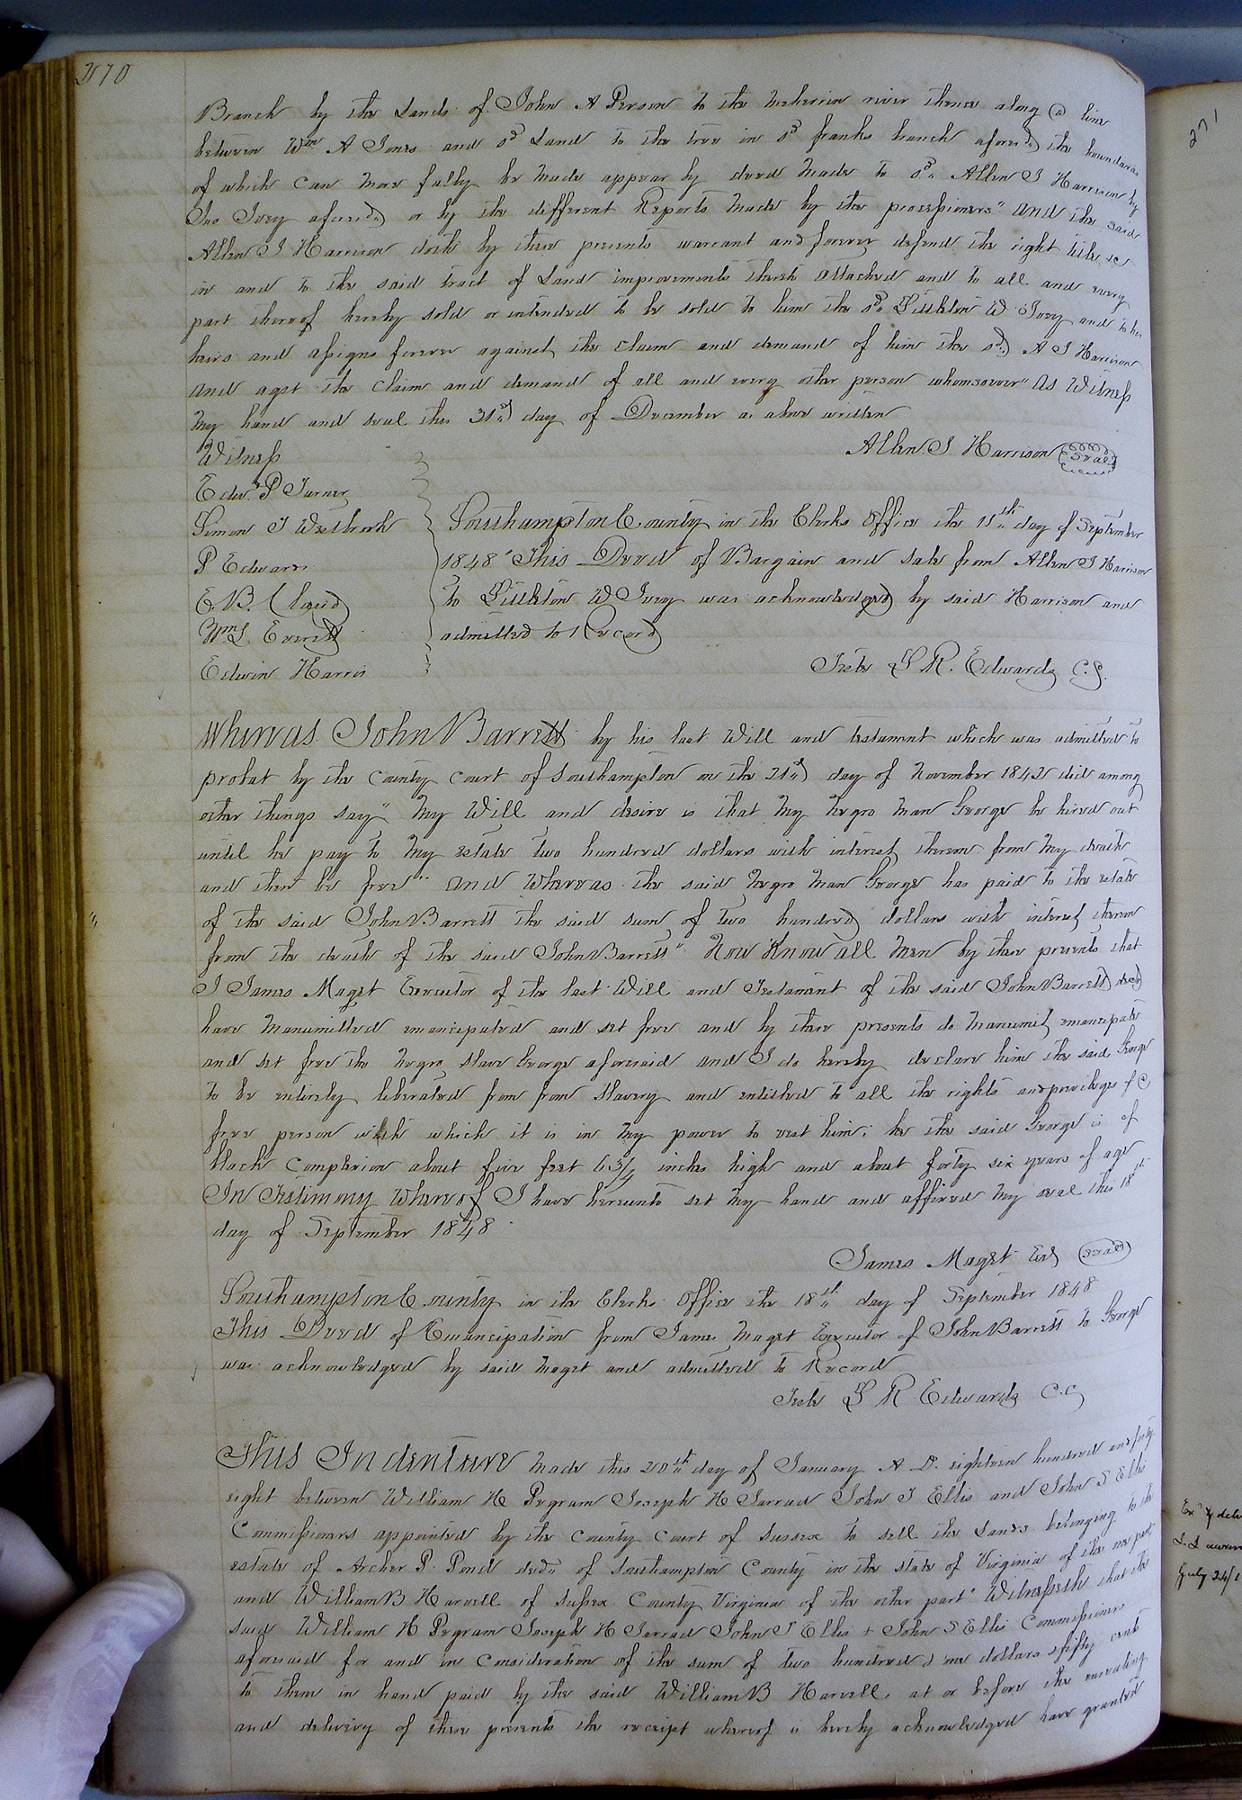 270
Branch by the Lands of John A Person to the Meherrin river thence along a line
between Wm A Jones and sd Land to the tree in sd franks branch aforesd the boundaries
of which can more fully be made appear by deed made to sd Allen S Harrison by
Jno Ivey aforesd or by the different Reports made by the processioners" and the said
Allen S Harrison doth by these presents warrant and forever defend the right title &c
in and to the said tract of Land improvements thereto attached and to all and every
part thereof hereby sold or intended to be sold to him the sd Littleton W Ivey and to his
heirs and assigns forever against the claim and demand of him the sd A S Harrison
and agst the claim and demand of all and every other person whomsoever" As Witness
my hand and seal this 31st day of December as above written
Allen S Harrison Seal
Witness
Edwd P Turner
Simon J Westbrook
P Edwards
E B Claud
Wm S Everett
Edwin Harris
Southampton County in the Clerks Office the 15th day of September
1848 "This Deed of Bargain and Sale from Allen S Harrison
to Littleton W Ivey was acknowledged by said Harrison and
admitted to Record
Teste L R. Edwards C.C.
Whereas John Barrett by his last Will and testament which was admitted to
probat by the County Court of Southampton on the 21st day of November 1842 did among
other things say" my Will and desire is that my Negro man George be hired out
until he pay to my estate two hundred dollars with interest thereon from my death
and then be free" And whereas the said Negro man George has paid to the estate
of the said John Barrett the said sum of two hundred dollars with interest thereon
from the death of the said John Barrett" Now Know all men by these presents that
I James Maget Executor of the last Will and Testament of the said John Barrett decd
have manumitted emancipated and set free and by these presents do manumit emancipate
and set free the negro slave George aforesaid and I do hereby declare him the said George
to be entirely liberated from from slavery and entitled to all the rights and privileges of a
free person with which it is in my power to vest him; he the said George is of
black complexion about five feet 6 3/4 inches high and about forty six years of age
In Testimony whereof I have hereunto set my hand and affixed my seal this 18th
day of September 1848.
James Maget Exr Seal
Southampton County in the Clerks Office the 18th day of September 1848
This Deed of Emancipation from James Maget Executor of John Barrett to George
was acknowledged by said Maget and admitted to Record
Teste L R Edwards C.C.
This Indenture made this 20th day of January A. D. eighteen hundred and forty
eight between William H Pegram Joseph H Jarrad John T Ellis and John S Ellis
Commissioners appointed by the County Court of Sussex to sell the Lands belonging to the
estate of Archer P. Pond decd of Southampton County in the state of Virginia of the one part
and William B Harvell of Sussex County Virginia of the other part" Witnesseth that the
said William H Pegram Joseph H Jarrad John T Ellis & John S Ellis Commissioners
aforesaid for and in consideration of the sum of two hundred & one dollars & fifty cents
to them in hand paid by the said William B Harvell, at or before the ensealing
and delivery of these presents the receipt whereof is hereby acknowledged have granted
271
July 24/